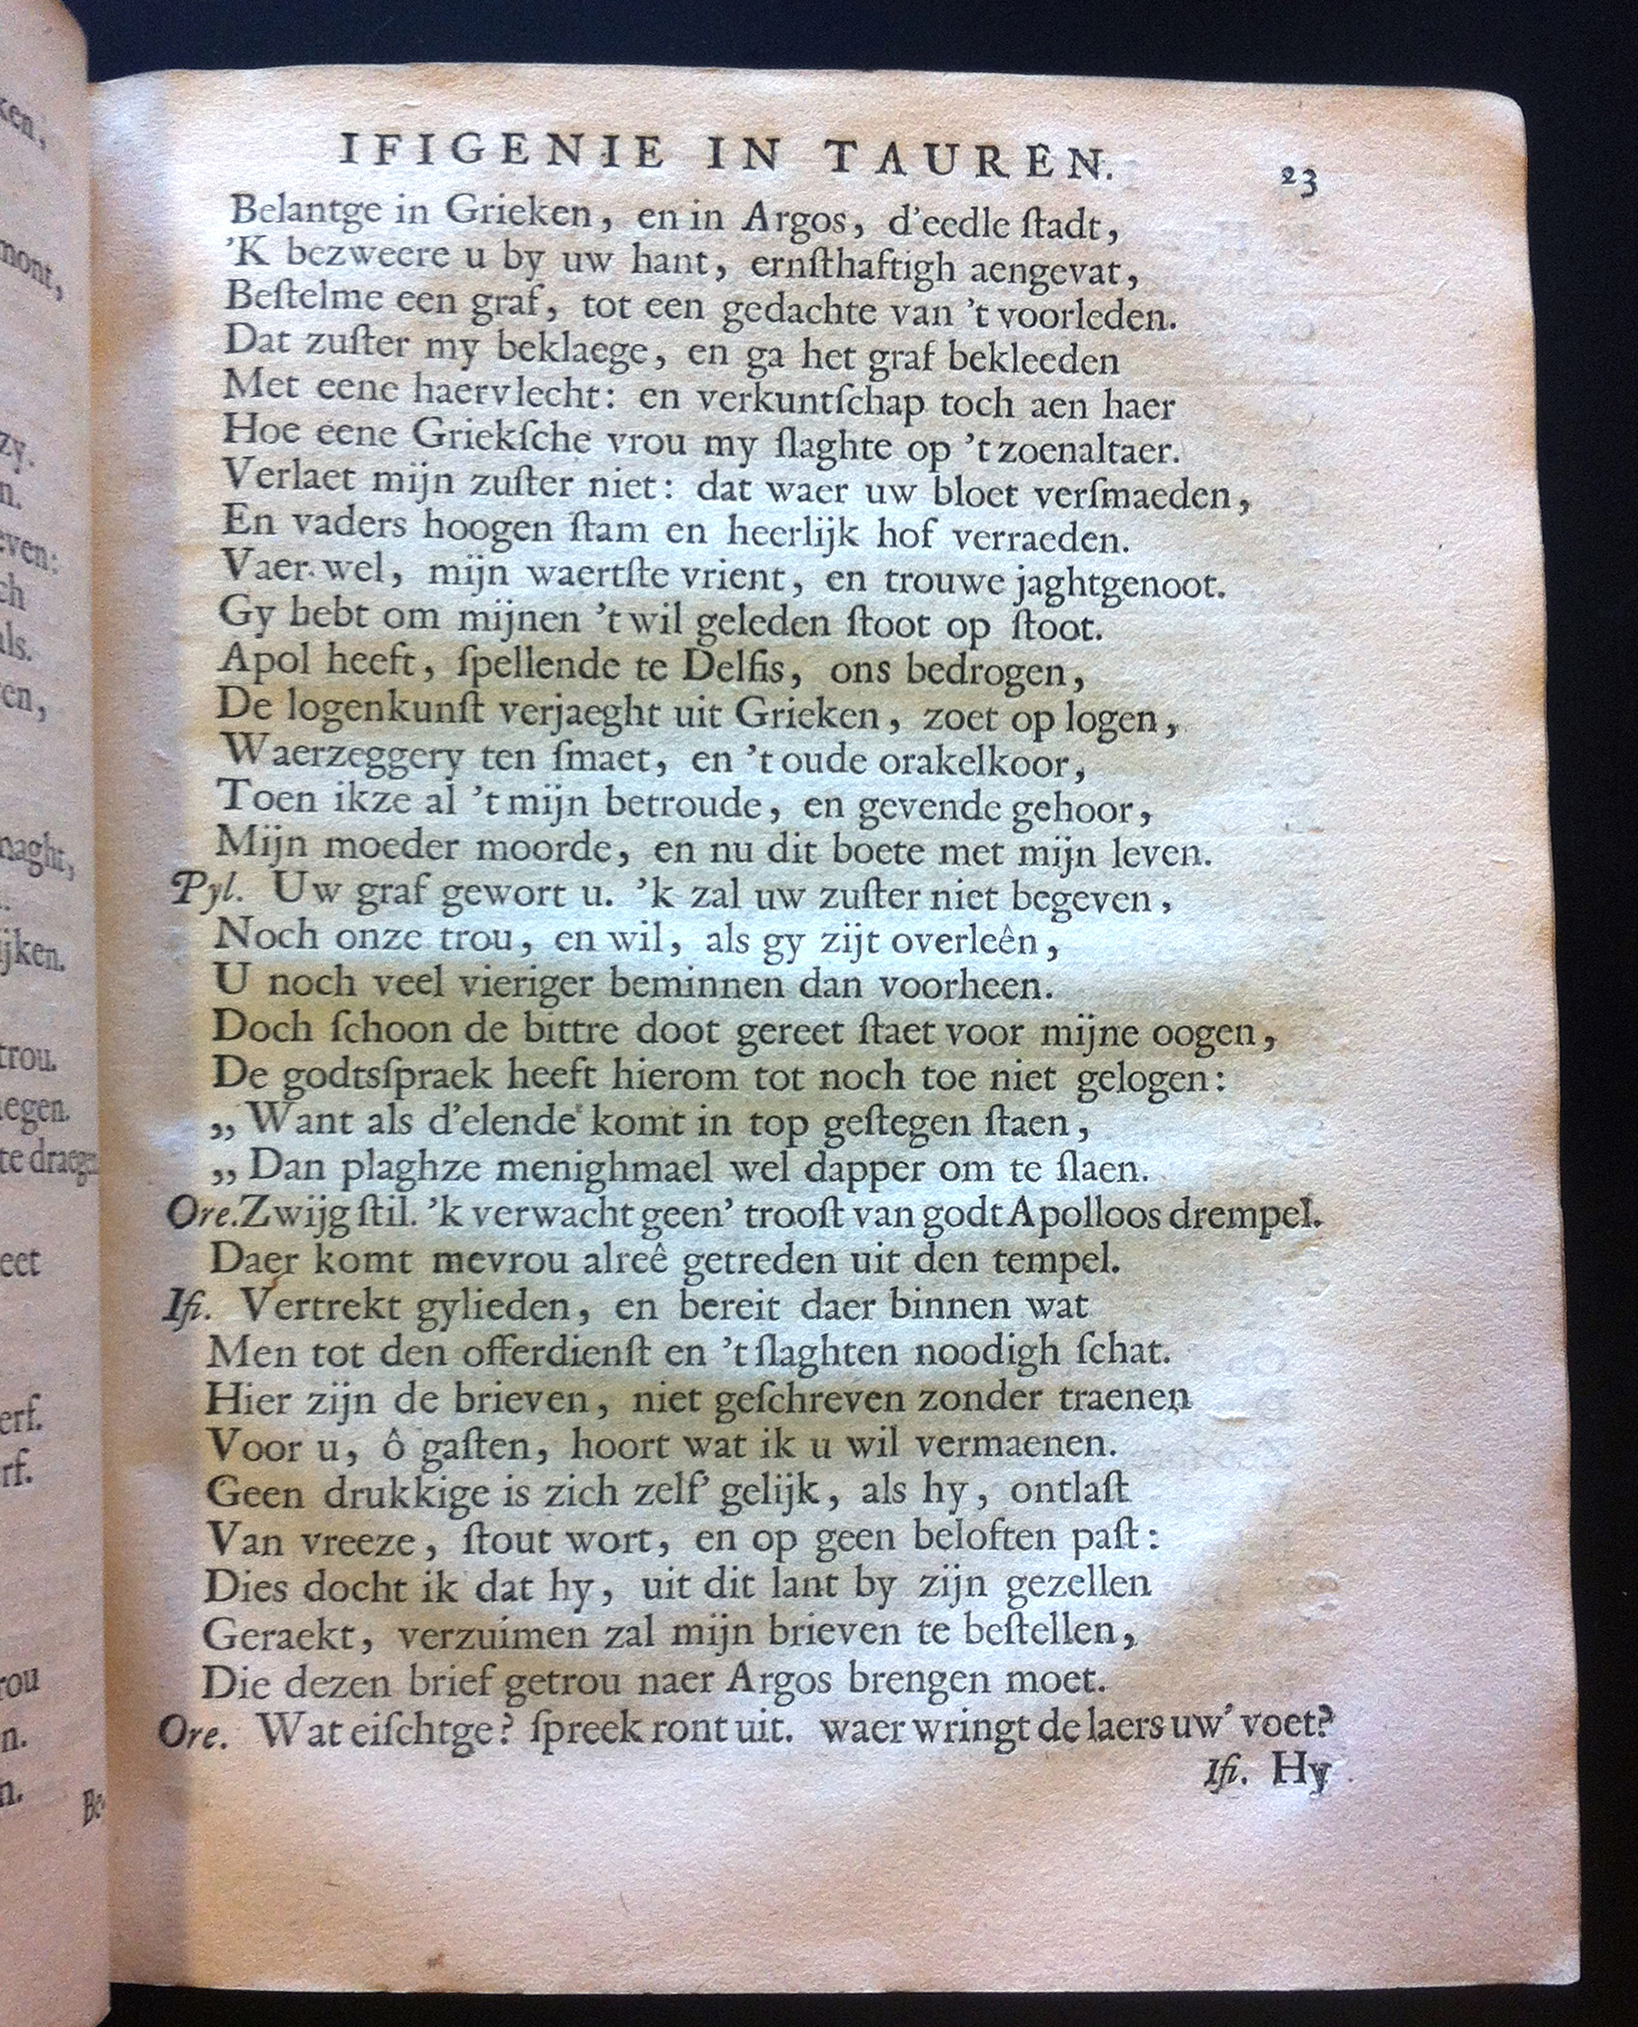 IFIGENIE IN TAUREN. 23
Belantge in Grieken, en in Argos, d'eedle ſtadt,
'K bezweere u by uw hant, ernſthaftigh aengevat,
Beſtelme een graf, tot een gedachte van 't voorleden.
Dat zuſter my beklaege, en ga het graf bekleeden
Met eene haervlecht: en verkuntſchap toch aen haer
Hoe eene Griekſche vrou my ſlaghte op 't zoenaltaer.
Verlaet mijn zuſter niet: dat waer uw bloet verſmaeden,
En vaders hoogen ſtam en heerlijk hof verraeden.
Vaer wel, mijn waertſte vrient, en trouwe jaghtgenoot.
Gy hebt om mijnen 't wil geleden ſtoot op ſtoot.
Apol heeft, ſpellende te Delfis, ons bedrogen,
De logenkunſt verjaeght uit Grieken, zoet op logen,
Waerzeggery ten ſmaet, en 't oude orakelkoor,
Toen ikze al 't mijn betroude, en gevende gehoor,
Mijn moeder moorde, en nu dit boete met mijn leven.
Pyl. Uw graf gewort u. 'k zal uw zuſter niet begeven,
Noch onze trou, en wil, als gy zijt overleên,
U noch veel vieriger beminnen dan voorheen.
Doch ſchoon de bittre doot gereet ſtaet voor mijne oogen,
De godtsſpraek heeft hierom tot noch toe niet gelogen:
,, Want als d'elende komt in top geſtegen ſtaen,
,, Dan plaghze menighmael wel dapper om te ſlaen.
Ore. Zwijg ſtil. 'k verwacht geen' trooſt van godt Apolloos drempel.
Daer komt mevrou alreê getreden uit den tempel.
Ifi. Vertrekt gylieden, en bereit daer binnen wat
Men tot den offerdienſt en 't ſlaghten noodigh ſchat.
Hier zijn de brieven, niet geſchreven zonder traenen
Voor u, ô gaſten, hoort wat ik u wil vermaenen.
Geen drukkige is zich zelf' gelijk, als hy, ontlaſt
Van vreeze, ſtout wort, en op geen beloften paſt:
Dies docht ik dat hy, uit dit lant by zijn gezellen
Geraekt, verzuimen zal mijn brieven te beſtellen,
Die dezen brief getrou naer Argos brengen moet.
Ore. Wat eiſchtge? ſpreek ront uit. waer wringt de laers uw' voet?
Ifi. Hy